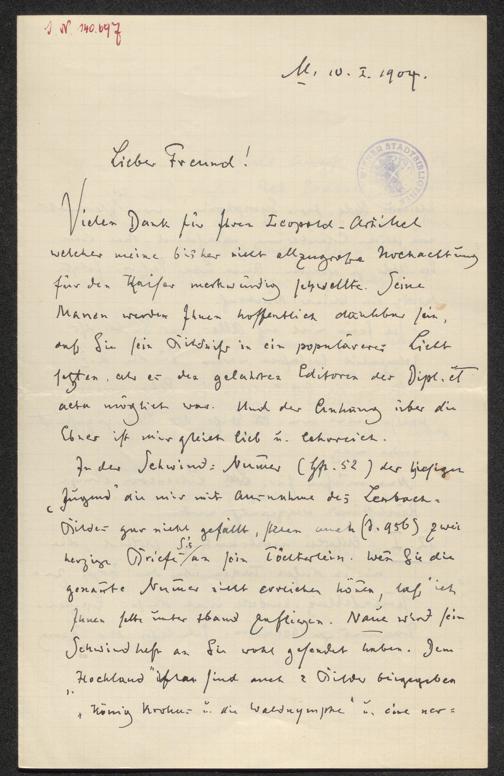 J. N. 140.697
M. 10. I. 1904.
WIENER STADTBIBLIOTHEK
Lieber Freund!
Vielen Dank für Ihren Leopold-Artikel
welcher meine bisher nicht allzugroße Hochachtung
für den Kaiser merkwürdig schwellte. Seine
Manen werden Ihnen hoffentlich dankbar sein,
daß Sie sein Bildniß in ein populäreres Licht
setzten, als es den gelahrten Editoren der Dipl. et
acta möglich war. Und der Anhang über die
Ebner ist mir gleich lieb u. lehrreich.
In der Schwind-Numer (Hft. 52) der hiesigen
„Jugend" die mir mit Ausnahme des Lenbach-
Bildes gar nicht gefällt, stehen auch (S. 956) zwei
herzige Briefe S.'s an sein Töchterlein. Wen Sie die
genañte Numer nicht erreichen köñen, laß' ich
Ihnen selbe unter Xband zufliegen. Naue wird sein
Schwindheft an Sie wohl gesendet haben. Dem
„Hochland" sind auch 2 Bilder beigegeben
„König Krokus u. die Waldnymphe" u. eine